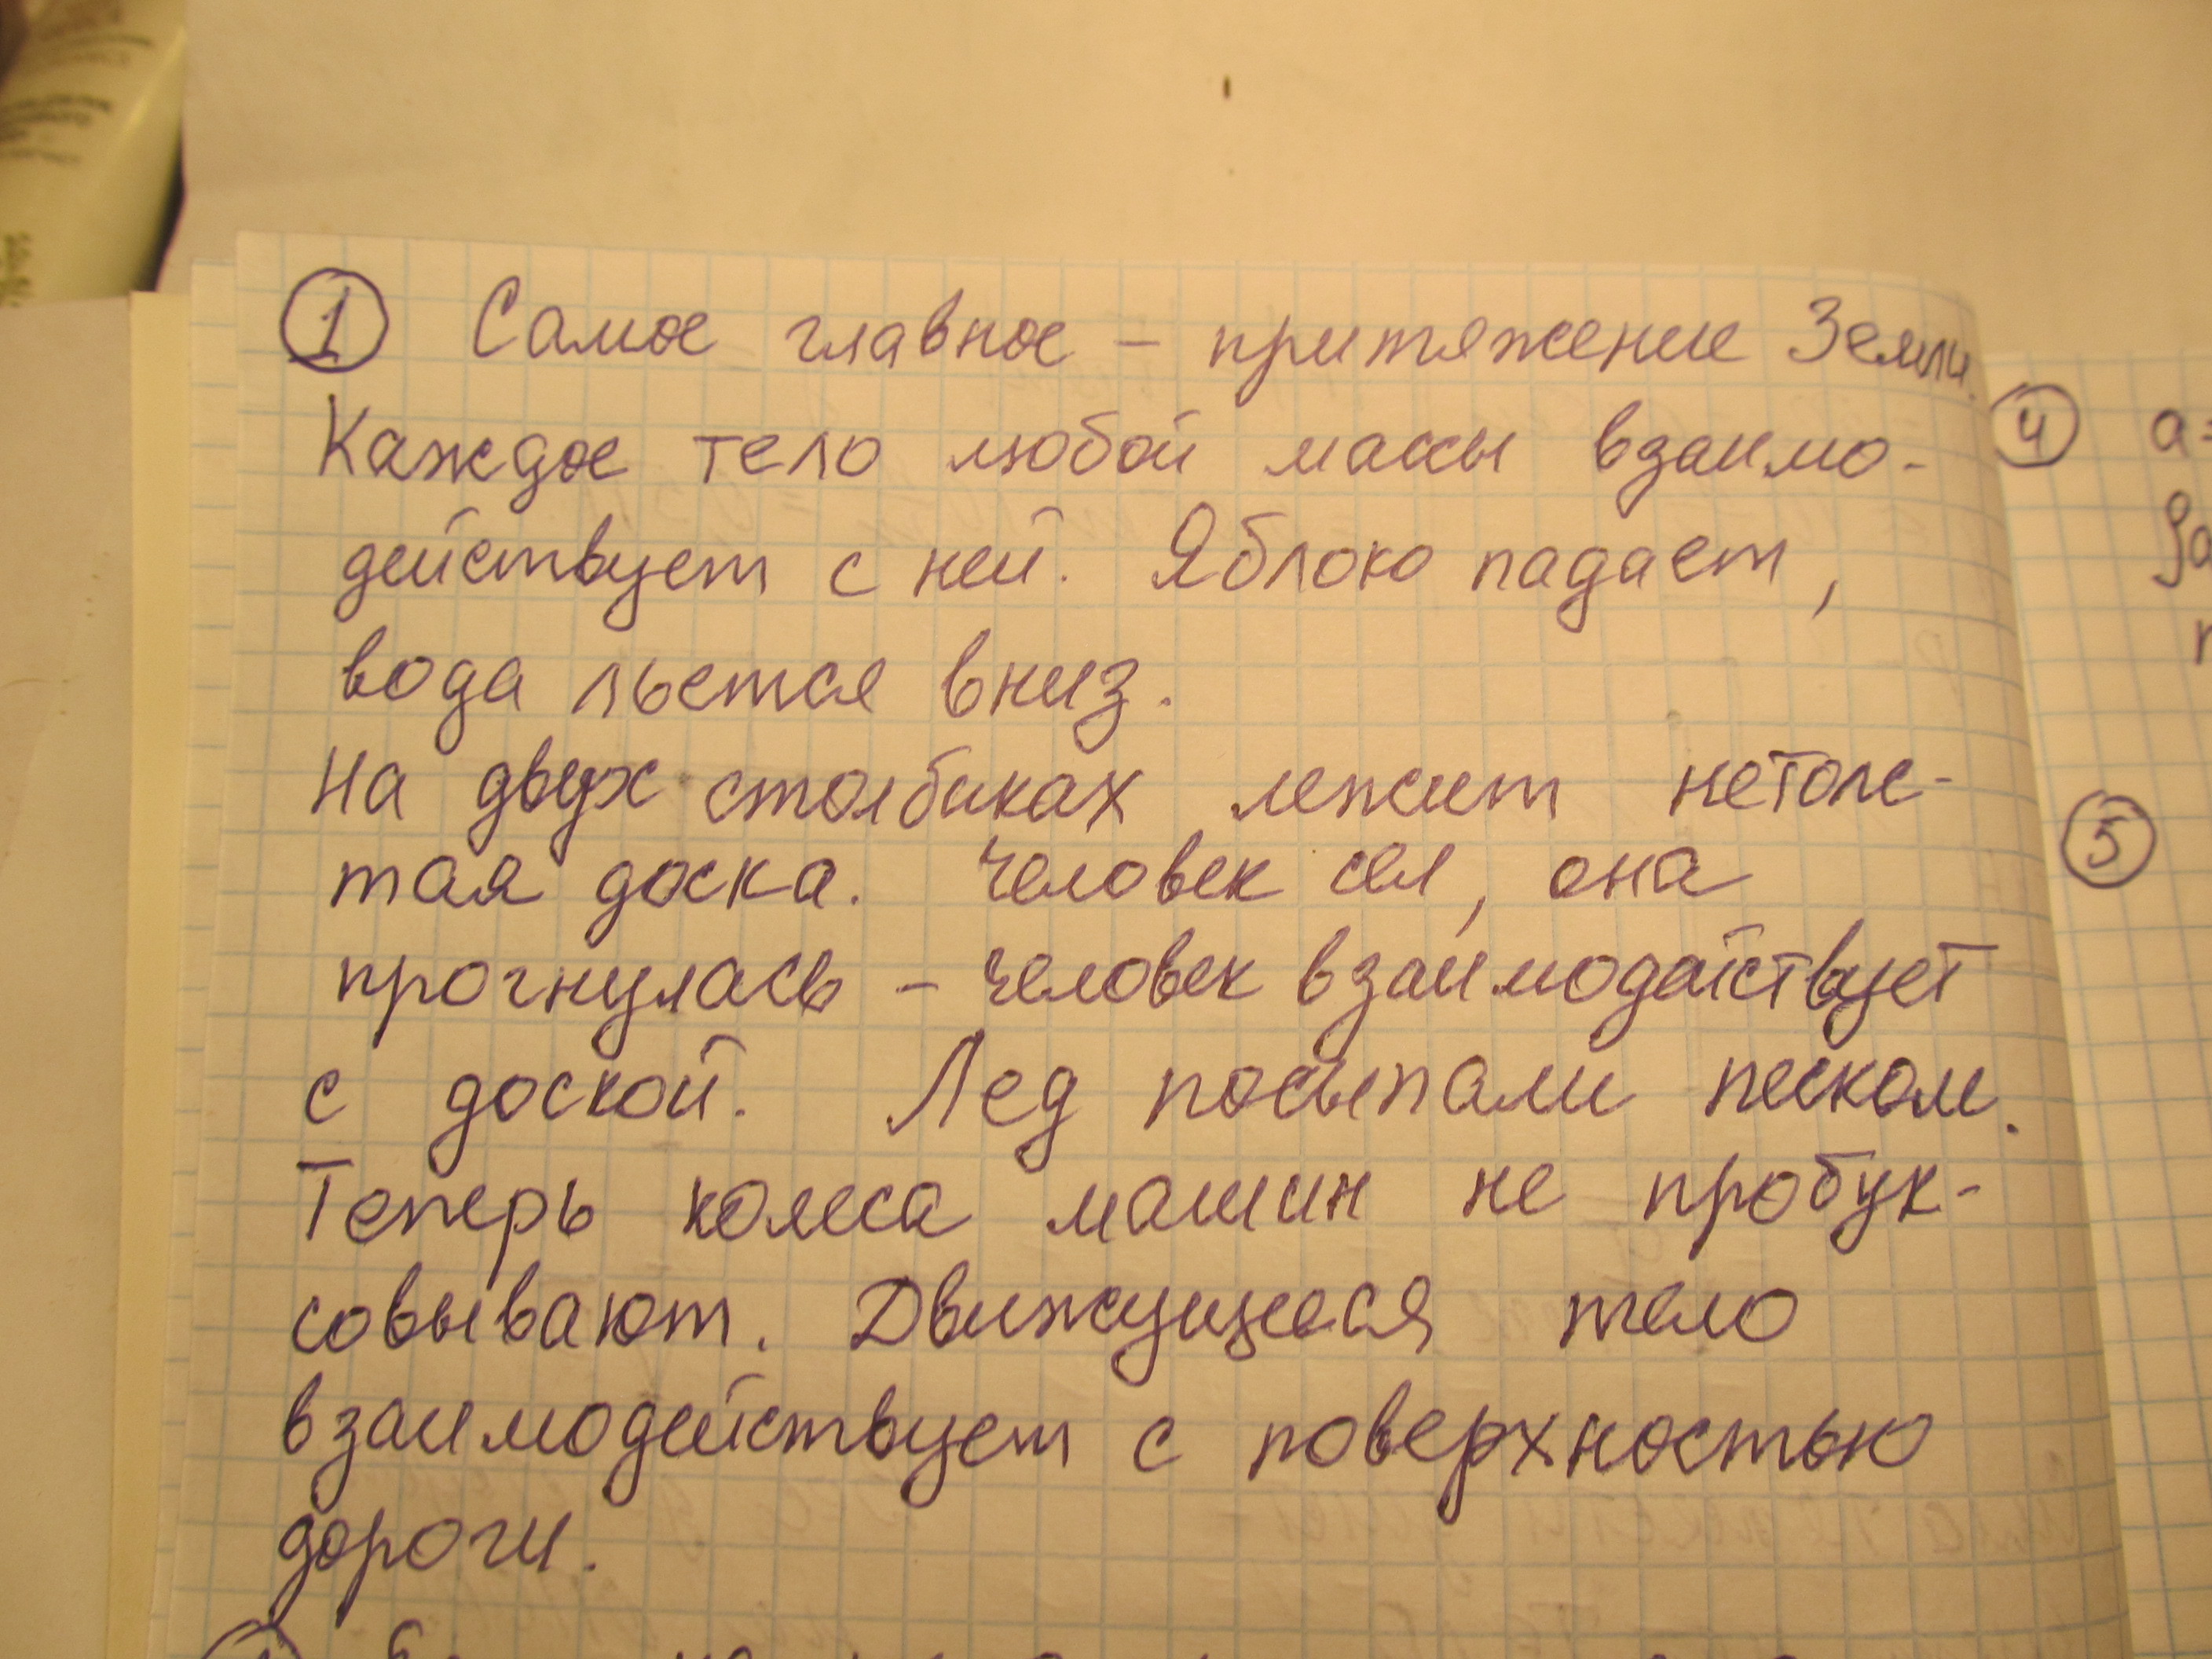 1 Самое главное – притяжение Земли.
Каждое тело любой массы взаимо-
действует с ней. Яблоко падает,
вода льется вниз.
На двух столбиках лежит нетолс-
тая доска. Человек сел, она
прогнулась – человек взаимодействует
с доской. Лед посыпали песком.
Теперь колеса машин не пробук-
совывают. Движущееся тело
взаимодействует с поверхностью
дороги.
4 a=
5